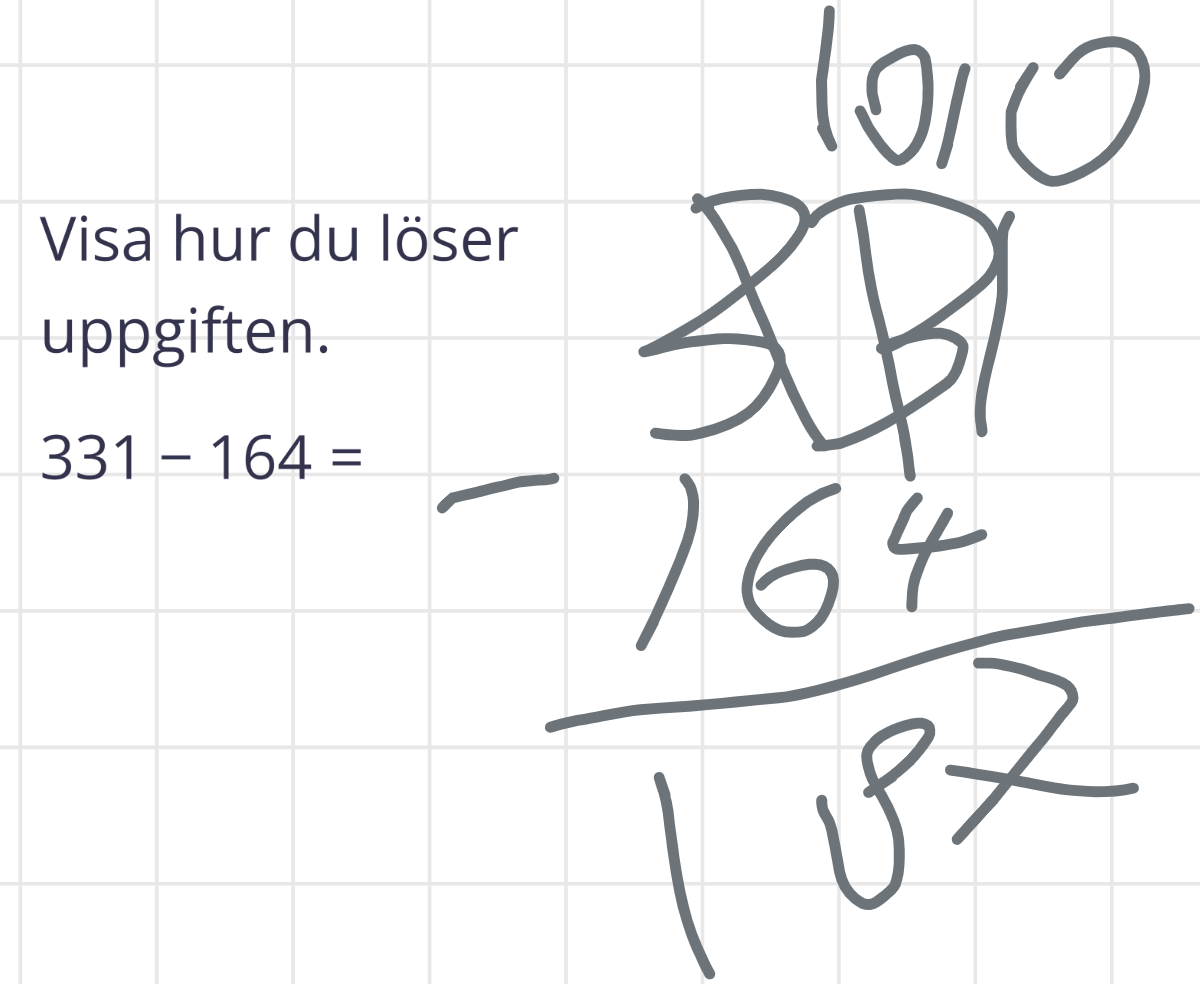 Visa hur du löser
uppgiften.
331 − 164 =
10 10
331
- 164
187